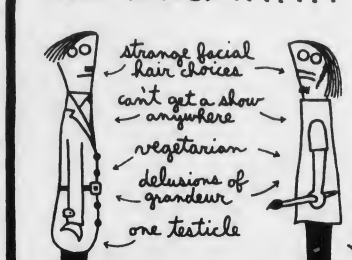 strange facial
hair choices
can't get a show
anywhere
vegetarian
delusions of
grandeur
one testicle